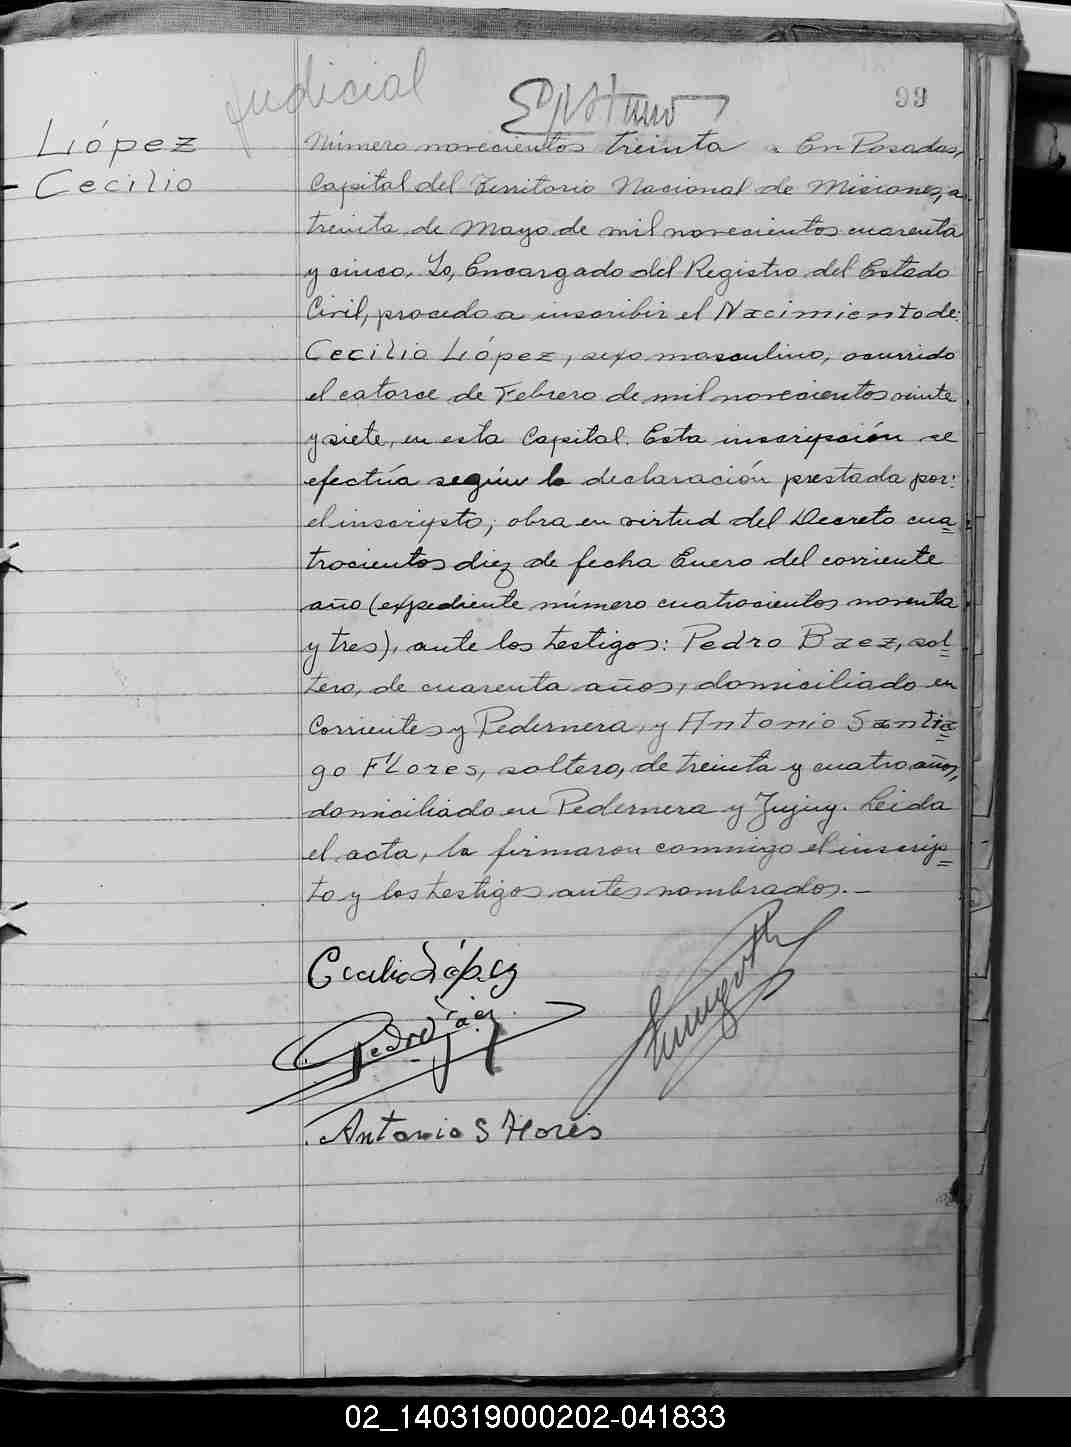 judicial
99
López
Cecilio
Número novecientos treinta . En Posadas,
Capital del Territorio Nacional de Misiones, a
treinta de Mayo de mil novecientos cuarenta
y cinco. Yo, Encargado del Registro del Estado
Civil, procedo a inscribir el Nacimiento de:
Cecilio López, sexo masculino, ocurrido
el catorce de Febrero de mil novecientos veinte
y siete, en esta Capital. Esta inscripción se
efectúa según la declaración prestada por:
el inscripto, obra en virtud del Decreto cua=
trocientos diez de fecha Enero del corriente
año (expediente número cuatrocientos noventa
y tres), ante los testigos: Pedro Baez, sol=
tero, de cuarenta años, domiciliado en
Corrientes y Pedernera, y Antonio Santia=
go Flores, soltero, de treinta y cuatro años,
domiciliado en Pedernera y Jujuy. Leida
el acta, la firmaron conmigo el inscrip=
to y los testigos antes nombrados.—
Cecilio López
Pedro Báez
Antonio S Flores
02_140319000202-041833